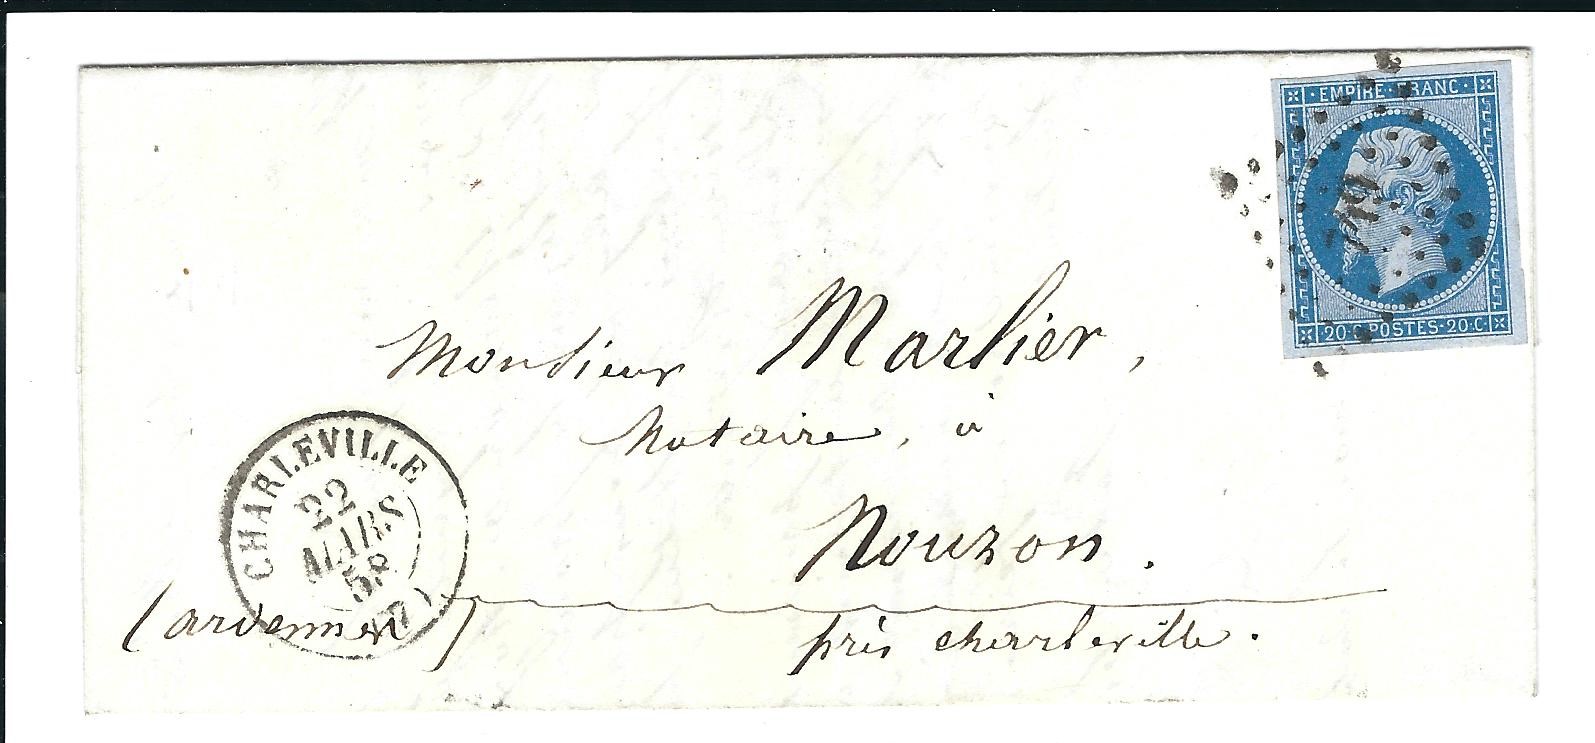 EMPIRE FRANC
20·C·POSTES·20·C
Monsieur Marlier,
Notaire, à
Nouzon.
près charleville.
(ardennes)
CHARLEVILLE
22
MARS
58
(7)